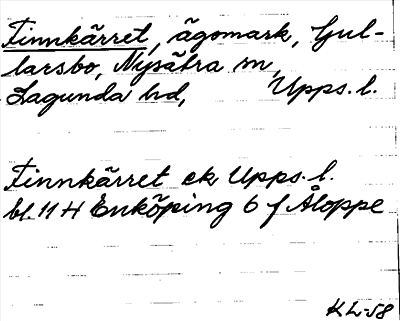 Finnkärret, ägomark, Gul-
larsbo, Nysätra sn,
Lagunda hd, Upps. l.
Finnkärret ek Upps. l.
bl. 11 H Enköping 6 f Åloppe
KL-58